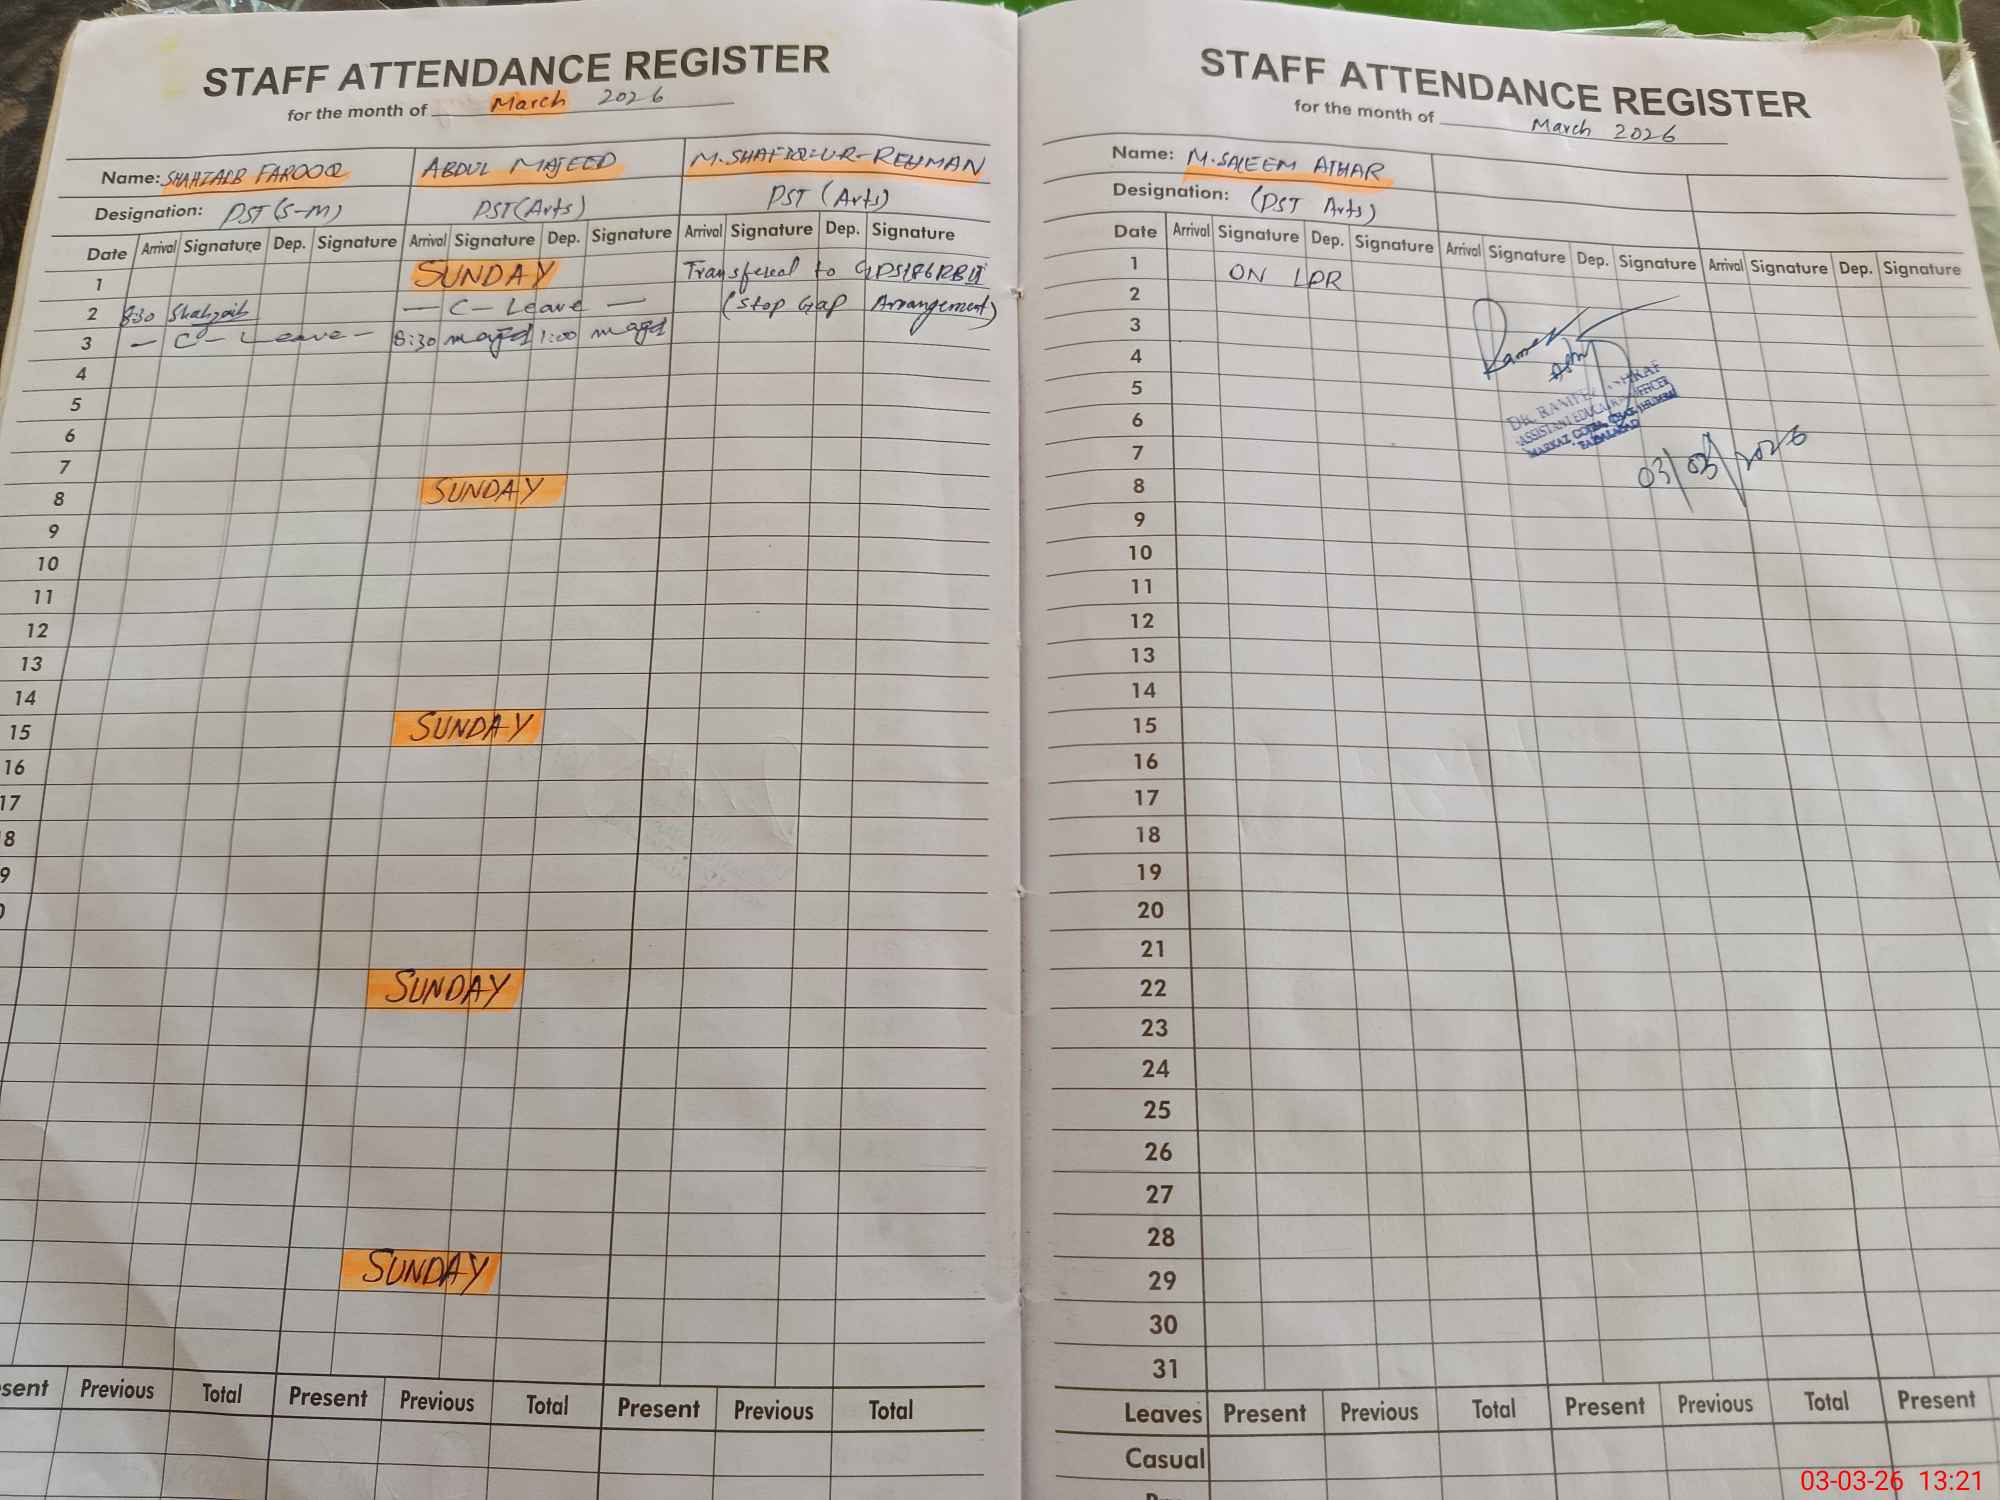 STAFF ATTENDANCE REGISTER
for the month of March 2026
Name: SHAHZAIB FAROOQ ABDUL MAJEED M.SHAFIQ-UR-REHMAN
Designation: PST (S-M) PST (Arts) PST (Arts)
Date Arrival Signature Dep. Signature Arrival Signature Dep. Signature Arrival Signature Dep. Signature
1 SUNDAY Transfered to
2 8:30 Shahzaib — C - Leave — (Stop Gap Arrangement)
3 — C - Leave — 8:30 majeed 1:00 majeed
4
5
6
7
8 SUNDAY
9
10
11
12
13
14
15 SUNDAY
16
17
8
9
SUNDAY
SUNDAY
sent Previous Total Present Previous Total Present Previous Total
STAFF ATTENDANCE REGISTER
for the month of March 2026
Name: M.SALEEM ATHAR
Designation: (PST Arts)
Date Arrival Signature Dep. Signature Arrival Signature Dep. Signature Arrival Signature Dep. Signature
1 ON LPR
2
3
4
5
6
7
8
9
10
11
12
13
14
15
16
17
18
19
20
21
22
23
24
25
26
27
28
29
30
31
ASSISTANT EDUCATION OFFICER
FAISALABAD
03/03/2026
Leaves Present Previous Total Present Previous Total Present
Casual
03-03-26 13:21